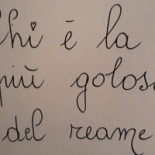 Chi è la
più golos
del reame